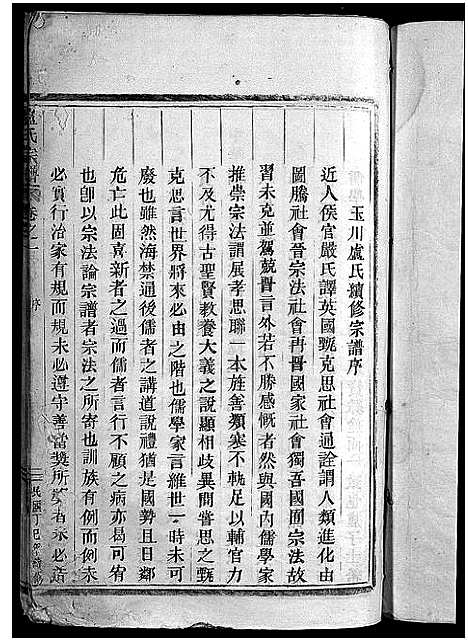 玉川盧氏續修宗譜序
近人侯官嚴氏譯英國甄克思社會通詮謂人類進化由
圖騰社會晉宗法社會再晉國家社會獨吾國囿宗法故
習未克並駕兢晋言外若不勝感慨者然與國内儒學家
推崇宗法謂展孝思聯一本旌善類寨不軌足以輔官力
不及尤得古聖賢敎養大義之說顯相歧異間嘗思之甄
克思言世界將來必由之階也儒學家言維世一時未可
廢也雖然海禁通後儒者之講道說禮猶是國勢且日鄰
危亡此固喜新者之過而儒者言行不顧之病亦曷可宥
也卽以宗法論宗譜者宗法之所寄也訓族有例而例未
必實行治家有規而規未必遵守善當獎所獎者未必善
氏宗譜 卷之一
序
民國丁巳